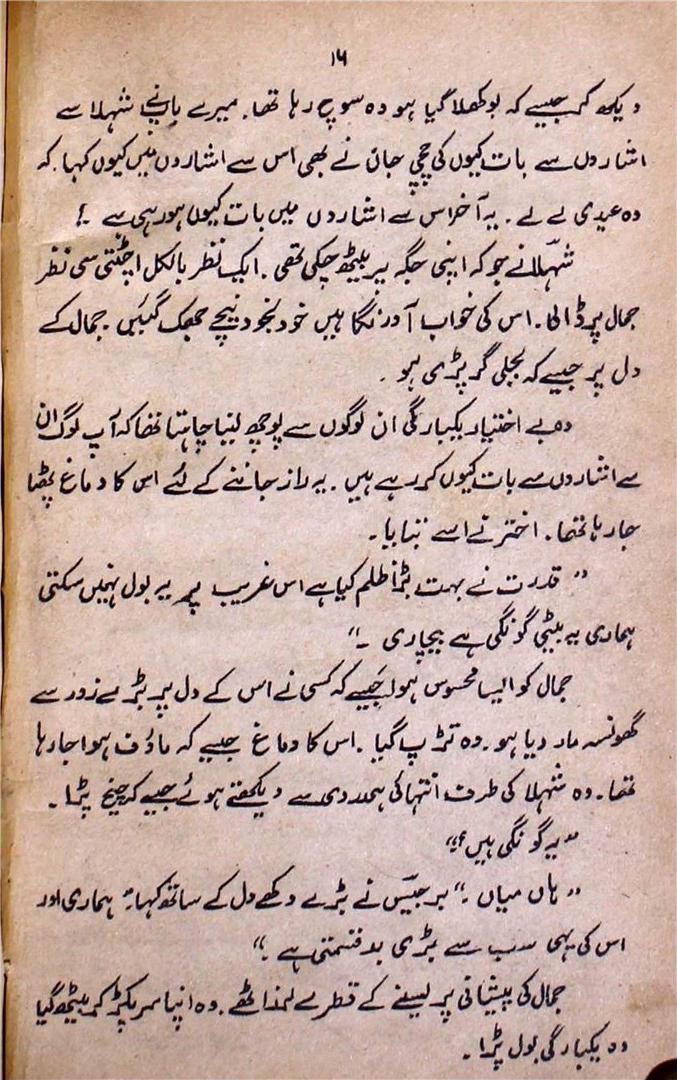 ۱۶
دیکھ کر جیسے کہ بوکھلا گیا ہو وہ سوچ رہا تھا۔ میرے باپ نے شہلا سے
اشاروں سے بات کیوں کی چچی جان نے بھی اس سے اشاروں میں کیوں کہا۔ کہ
وہ عیدی لے لے۔ یہ آخر اس سے اشاروں میں بات کیوں ہو رہی ہے ۔!
شہلا نے جو کہ اپنی جگہ پر بیٹھ چکی تھی۔ ایک نظر بالکل اچٹتی سی نظر
جمال پر ڈالی۔ اس کی خواب آور نگاہیں خود بخود نیچے جھک گئیں۔ جمال کے
دل پر جیسے کہ بجلی گر پڑی ہو۔
وہ بے اختیار یکبارگی ان لوگوں سے پوچھ لینا چاہتا تھا کہ آپ لوگ ان
سے اشاروں سے بات کیوں کر رہے ہیں۔ یہ راز جاننے کے لئے اس کا دماغ پھٹا
جا رہا تھا۔ اختر نے اسے بتایا۔
”قدرت نے بہت بڑا ظلم کیا ہے اس غریب پر یہ بول نہیں سکتی
ہماری یہ بیٹی گونگی ہے بیچاری ۔“
جمال کو ایسا محسوس ہوا جیسے کہ کسی نے اس کے دل پر بڑے زور سے
گھونسہ مار دیا ہو۔ وہ تڑپ گیا۔ اس کا دماغ جیسے کہ ماؤف ہوا جا رہا
تھا۔ وہ شہلا کی طرف انتہائی ہمدردی سے دیکھتے ہوئے جیسے کہ چیخ پڑا۔
”یہ گونگی ہیں؟“
”ہاں میاں ۔“ برجیس نے بڑے دکھے دل کے ساتھ کہا۔ ”ہماری اور
اس کی یہی سب سے بڑی بدقسمتی ہے ۔“
جمال کی پیشانی پر پسینے کے قطرے لرز اٹھے۔ وہ اپنا سر پکڑ کر بیٹھ گیا
وہ یکبارگی بول پڑا۔